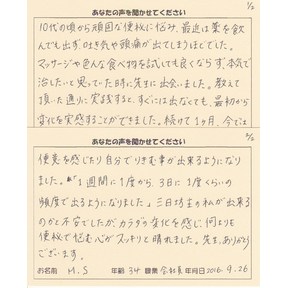 1/2
あなたの声を聞かせてください
10代の頃から頑固な便秘に悩み、最近は薬を飲
んでも出ず吐き気や頭痛が出てしまうほどでした。
マッサージや色んな食べ物を試しても良くならず本気で
治したいと思っていた時に先生に出会いました。教えて
頂いた通りに実践すると、すぐには出なくても、最初から
変化を実感することができます。続けて1ヶ月、今では
2/2
あなたの声を聞かせてください
便意を感じたり自分でりきむ事が出来るようになり
ました。1週間に1度から、3日に1度くらいの
頻度で出るようになりました。三日坊主の私が出来る
のかと不安でしたが、カラダの変化を感じ、何よりも
便秘で悩む心がスッキリと晴れました。先生、ありがとう
ございます。
お名前 M.S 年齢 34 職業 会社員 年月日 2016.9.26